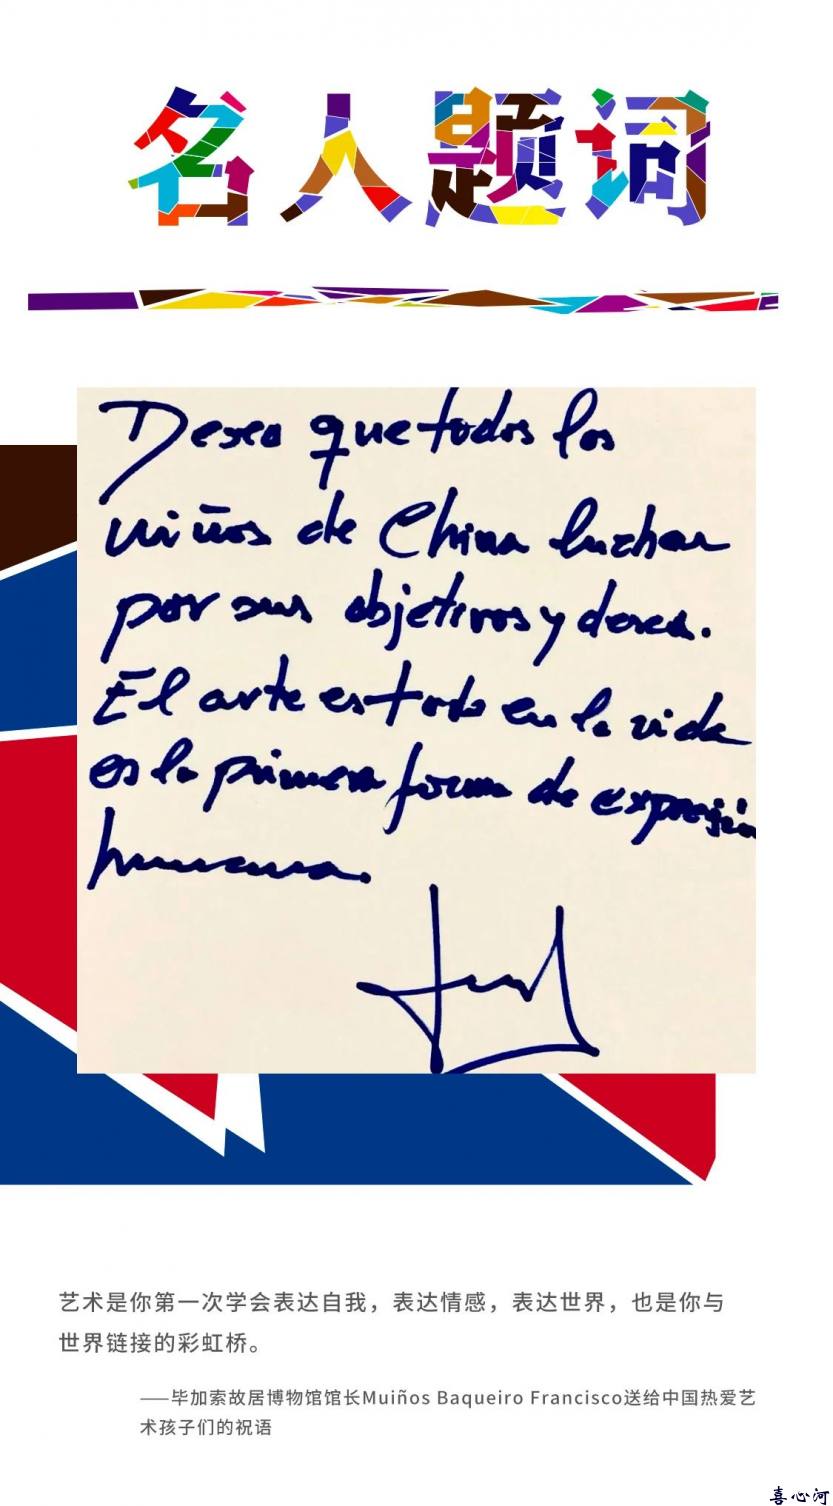 名人题词
Deseo que todos los
niños de China luchen
por sus objetivos y deseos.
El arte es todo en la vida
es la primera forma de expresión
humana.
艺术是你第一次学会表达自我，表达情感，表达世界，也是你与
世界链接的彩虹桥。
——毕加索故居博物馆馆长Muiños Baqueiro Francisco送给中国热爱艺
术孩子们的祝语
喜心河